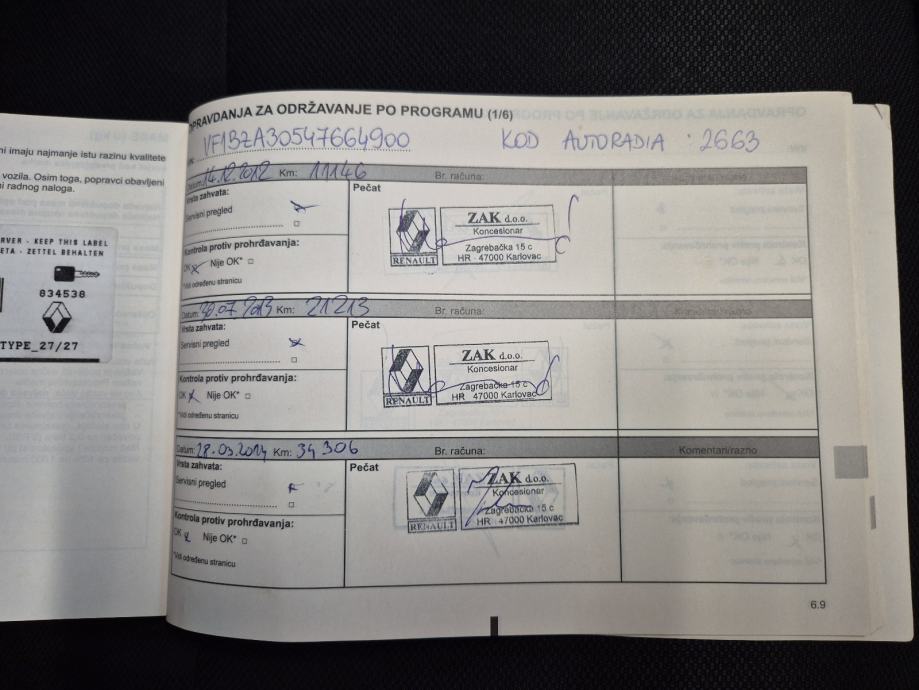 ni imaju najmanje istu razinu kvalitete
vozila. Osim toga, popravci obavljeni
ni radnog naloga.
RVER - KEEP THIS LABEL
ETA - ZETTEL BEHALTEN
834538
TYPE_27/27
OPRAVDANJA ZA ODRŽAVANJE PO PROGRAMU (1/6)
VF1BZA30547664900 KOD AUTORADIA : 2663
Datum: 14.12.2012 Km: 11146 Br. računa:
Vrsta zahvata: Pečat
Servisni pregled
Kontrola protiv prohrđavanja:
OK Nije OK*
*Vidi određenu stranicu
RENAULT
ZAK d.o.o.
Koncesionar
Zagrebačka 15 c
HR - 47000 Karlovac
Datum: 07.2013 Km: 21213 Br. računa:
Vrsta zahvata: Pečat
Servisni pregled
Kontrola protiv prohrđavanja:
OK Nije OK*
*Vidi određenu stranicu
RENAULT
ZAK d.o.o.
Koncesionar
Zagrebačka 15 c
HR 47000 Karlovac
Datum: 28.03.2014 Km: 34306 Br. računa: Komentari/razno
Vrsta zahvata: Pečat
Servisni pregled
Kontrola protiv prohrđavanja:
OK Nije OK*
*Vidi određenu stranicu
RENAULT
ZAK d.o.o.
Koncesionar
Zagrebačka 15 c
HR - 47000 Karlovac
6.9